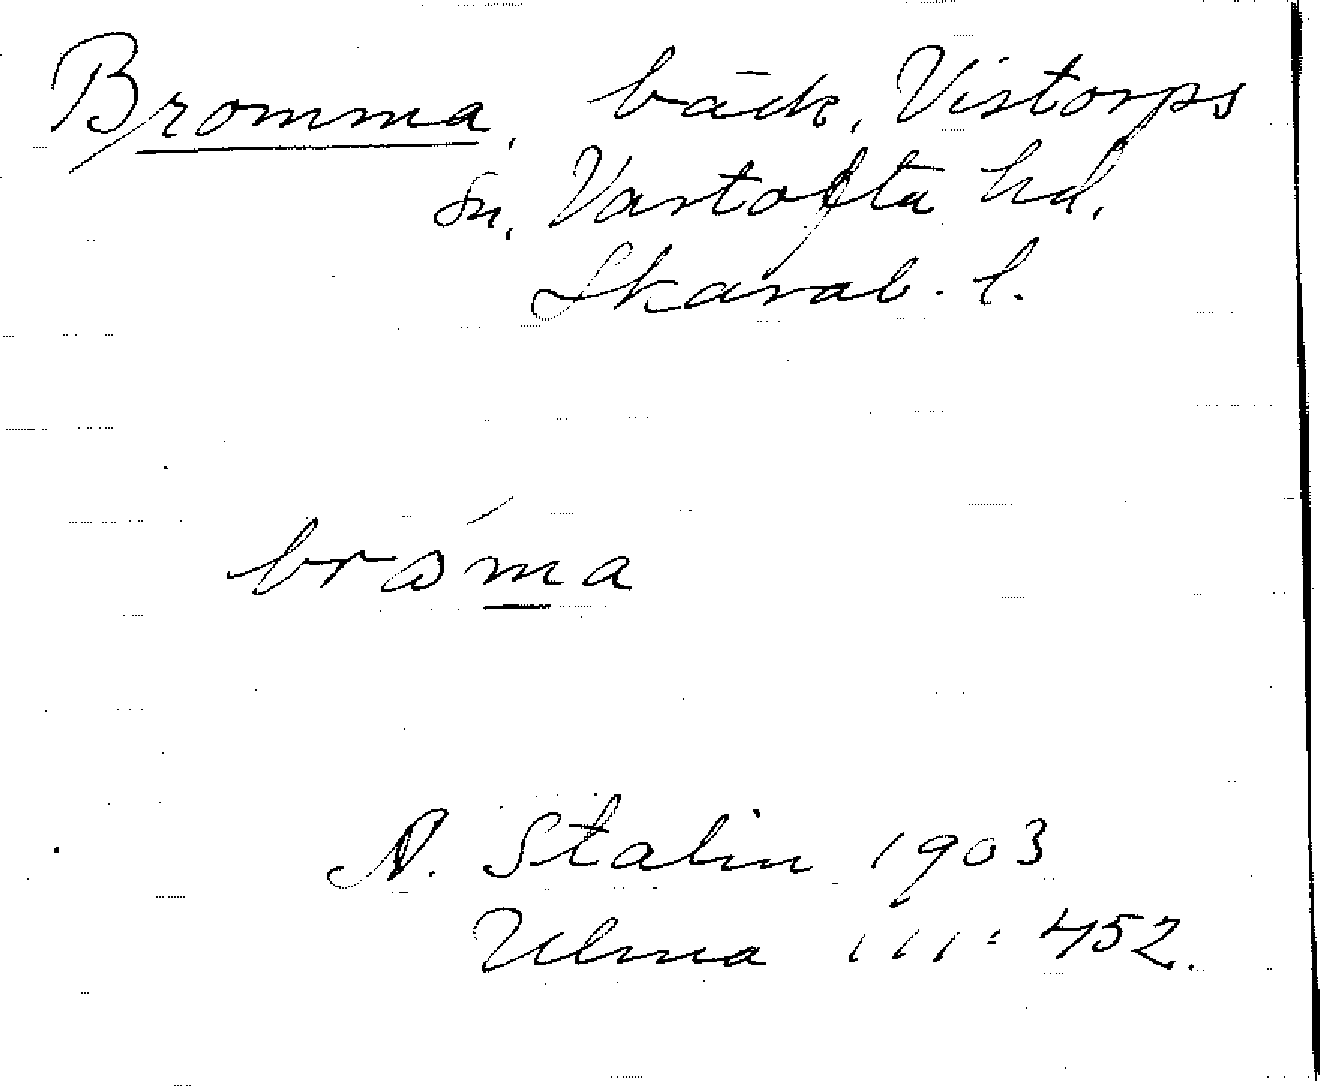 Bromma, bäck, Vistorps
sn, Vartofta hd,
Skarab. l.
bråma
A. Stalin 1903
Ulma 111:452.